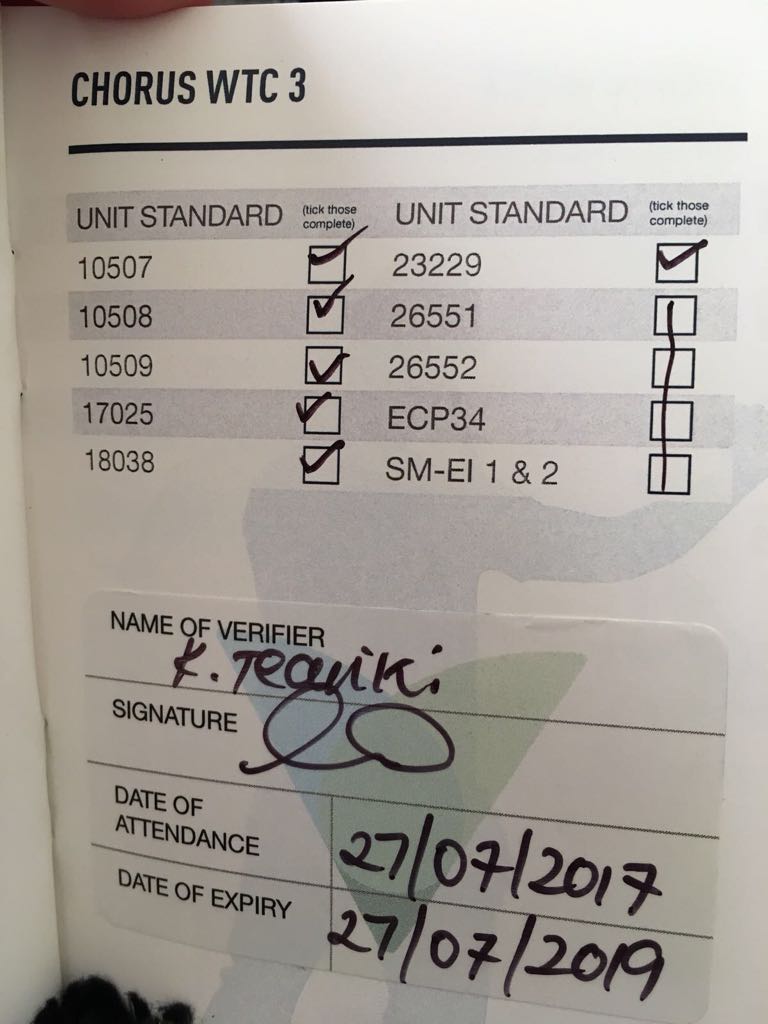 CHORUS WTC 3
UNIT STANDARD (tick those complete) UNIT STANDARD (tick those complete)
10507 23229
10508 26551
10509 26552
17025 ECP34
18038 SM-EI 1 & 2
NAME OF VERIFIER
K.
SIGNATURE
DATE OF ATTENDANCE 27/07/2017
DATE OF EXPIRY 27/07/2019